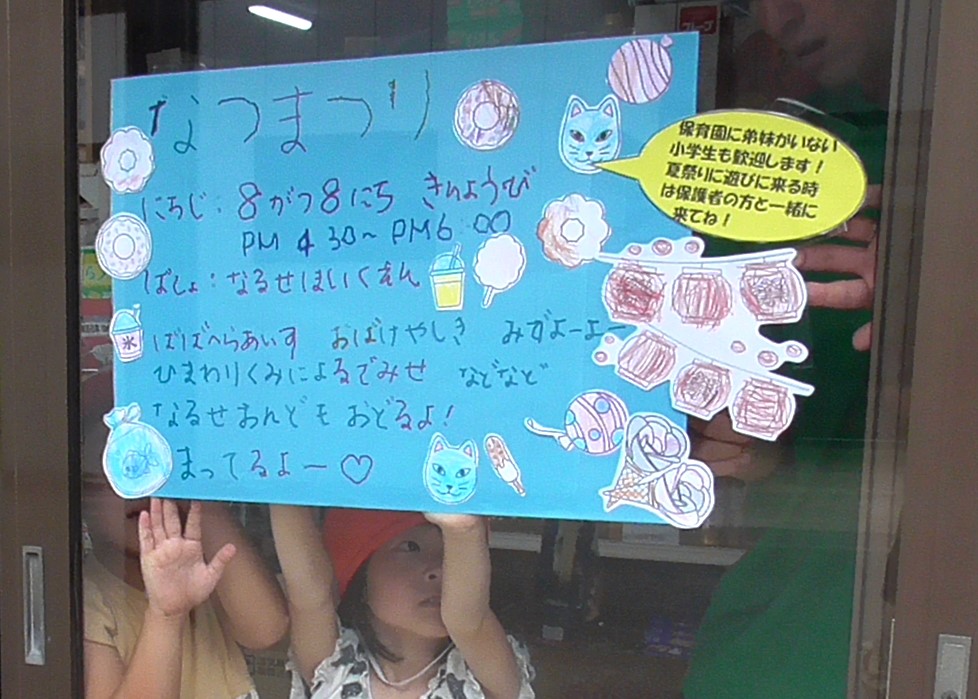 なつまつり
にちじ：8がつ8にち きんようび
PM 4 30～PM6 00
ばしょ：なるせほいくえん
ばばへらあいす おばけやしき みずよーよー
ひまわりくみによるでみせ などなど
なるせおんどもおどるよ！
まってるよー♡
保育園に弟妹がいない
小学生も歓迎します！
夏祭りに遊びに来る時
は保護者の方と一緒に
来てね！
氷